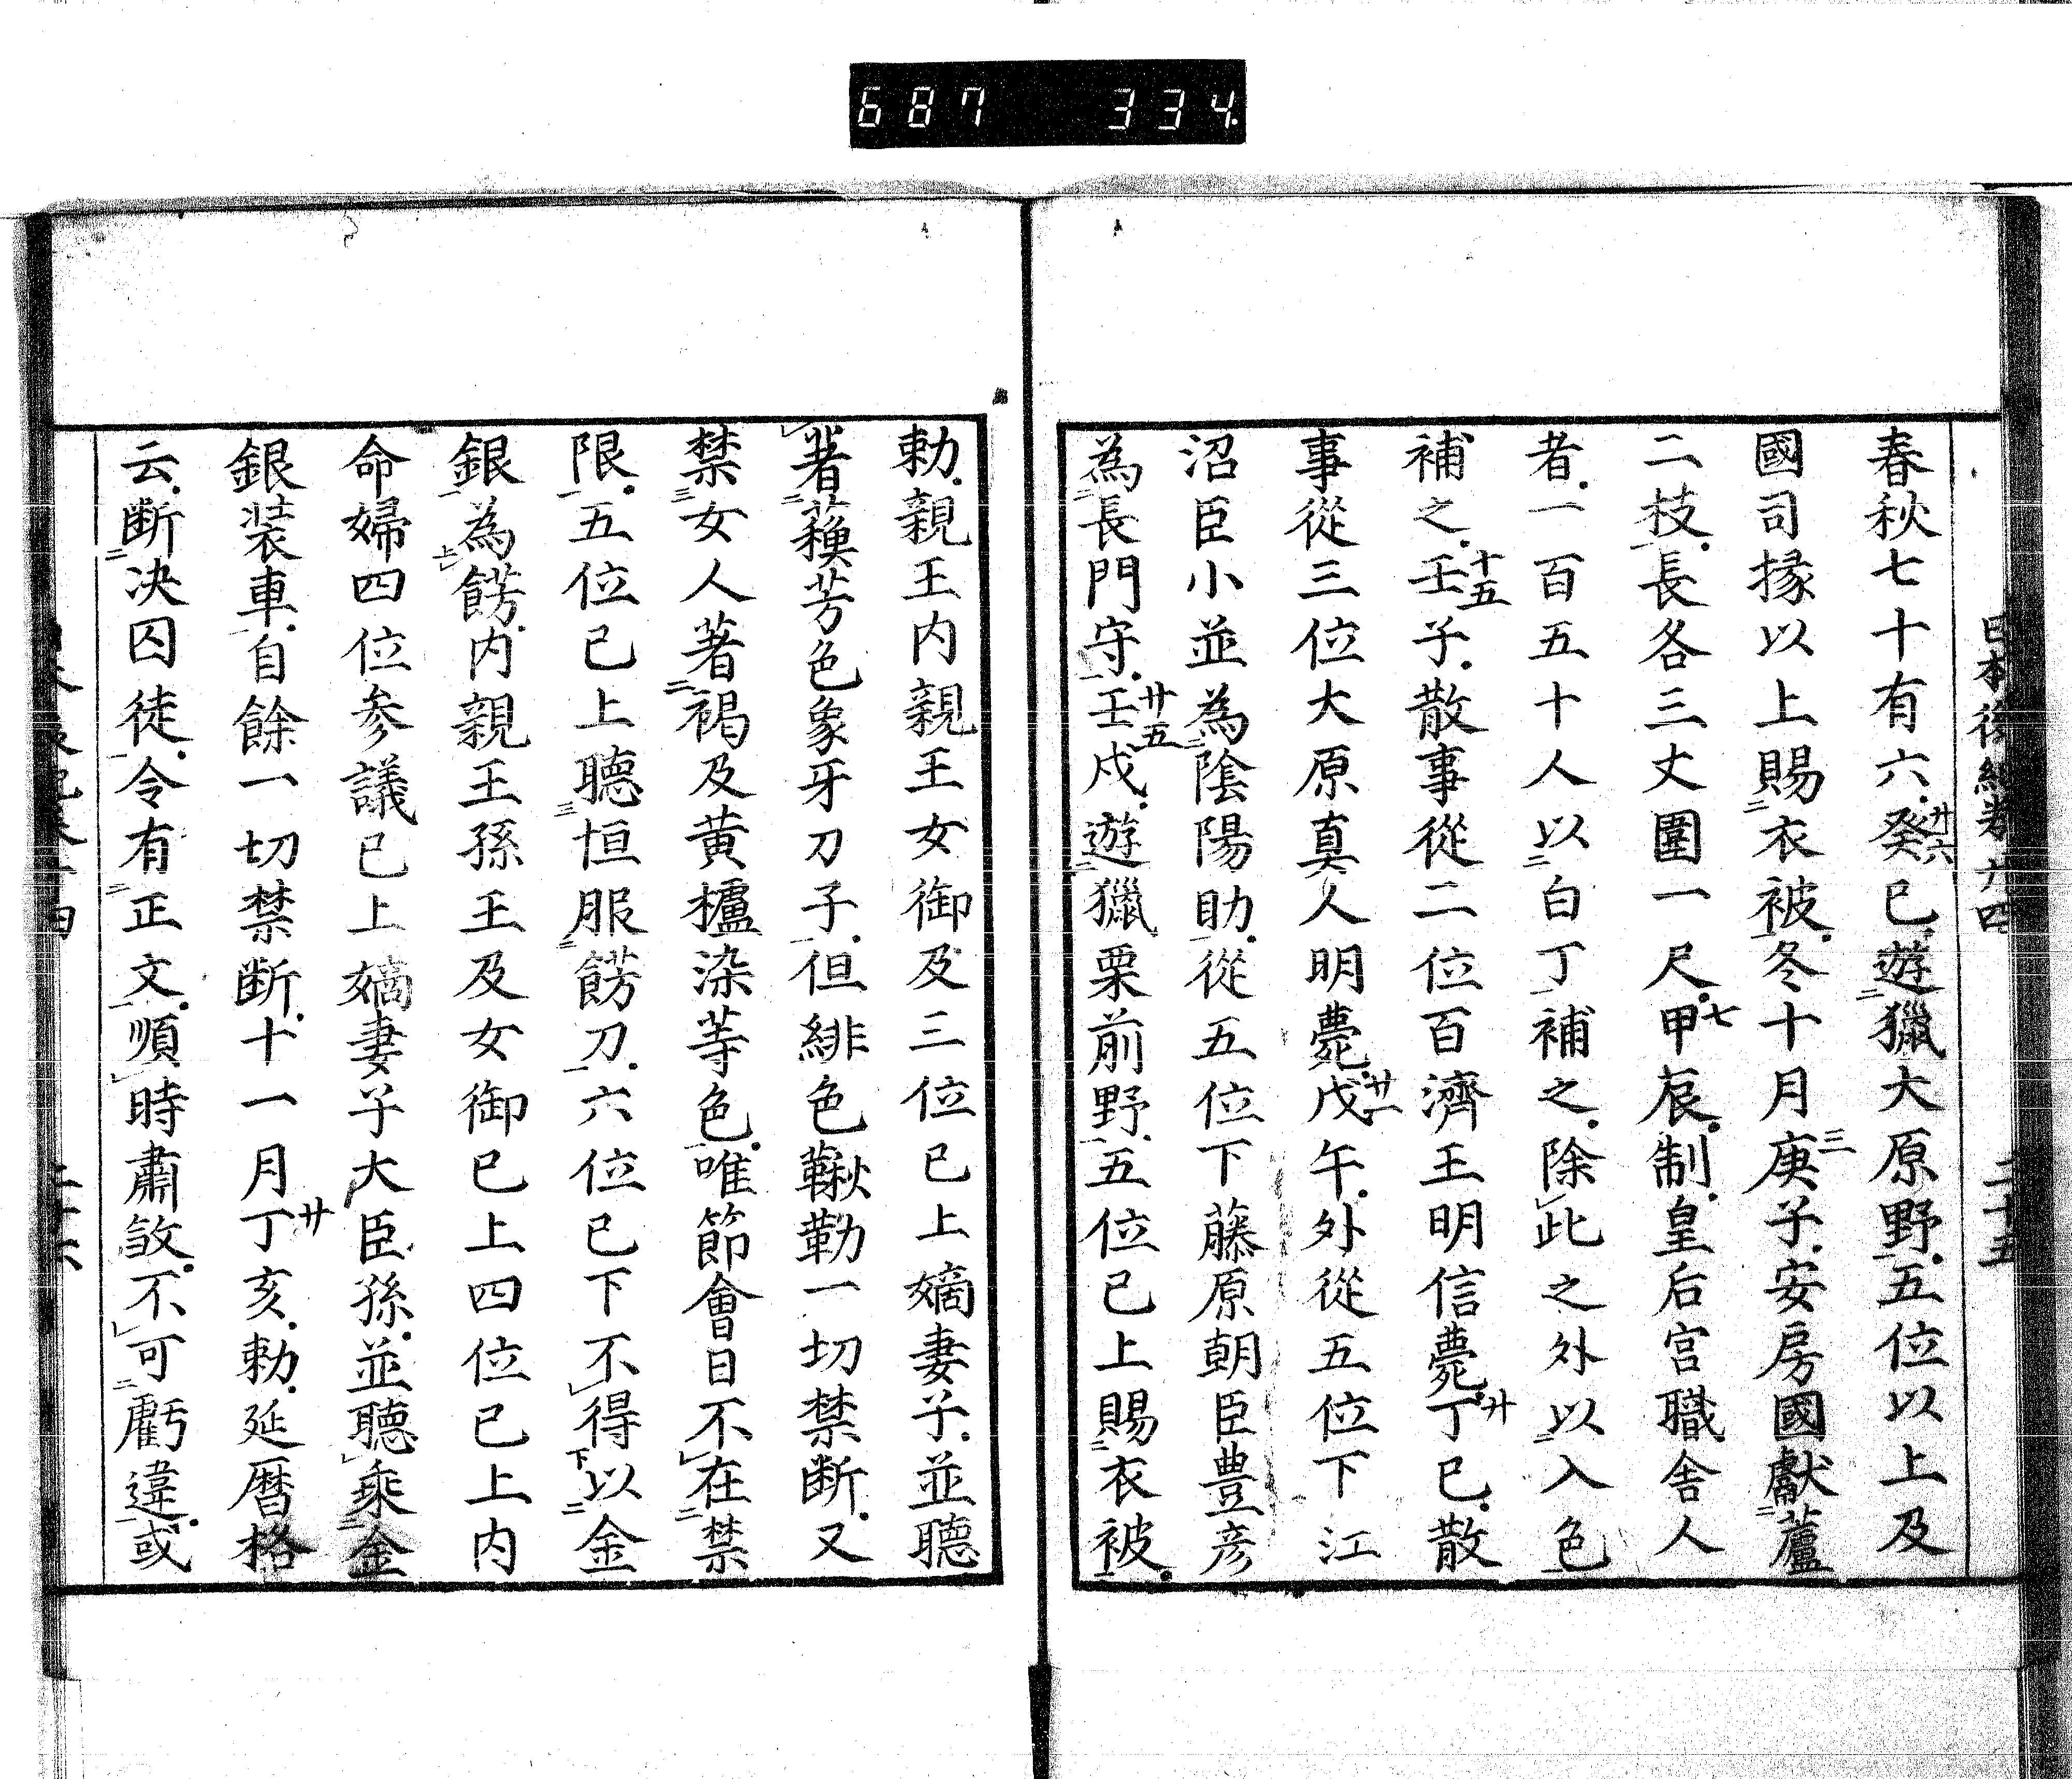 687 334
日本後紀卷廿四
二十五
春秋七十有六癸巳廿六遊獵大原野五位以上及
國司掾以上賜衣被冬十月庚子三安房國獻蘆
二枝長各三丈圍一尺甲辰七制皇后宮職舍人
者一百五十人以白丁補之除此之外以入色
補之壬子十五散事從二位百濟王明信薨丁巳廿散
事從三位大原真人明薨戊午廿一外從五位下江
沼臣小並為陰陽助從五位下藤原朝臣豊彦
為長門守壬戌廿五遊獵栗前野五位已上賜衣被
勅親王内親王女御及三位已上嫡妻子並聽
著蘓芳色象牙刀子但緋色鞦勒一切禁断又
禁女人著褐及黄櫨染等色唯節會日不在禁
限五位已上聽恒服餝刀六位已下不得以金
銀為餝内親王孫王及女御已上四位已上内
命婦四位参議已上嫡妻子大臣孫並聽乘金
銀装車自餘一切禁断十一月丁亥廿勅延暦格
云断决囚徒令有正文順時肅敛不可虧違或